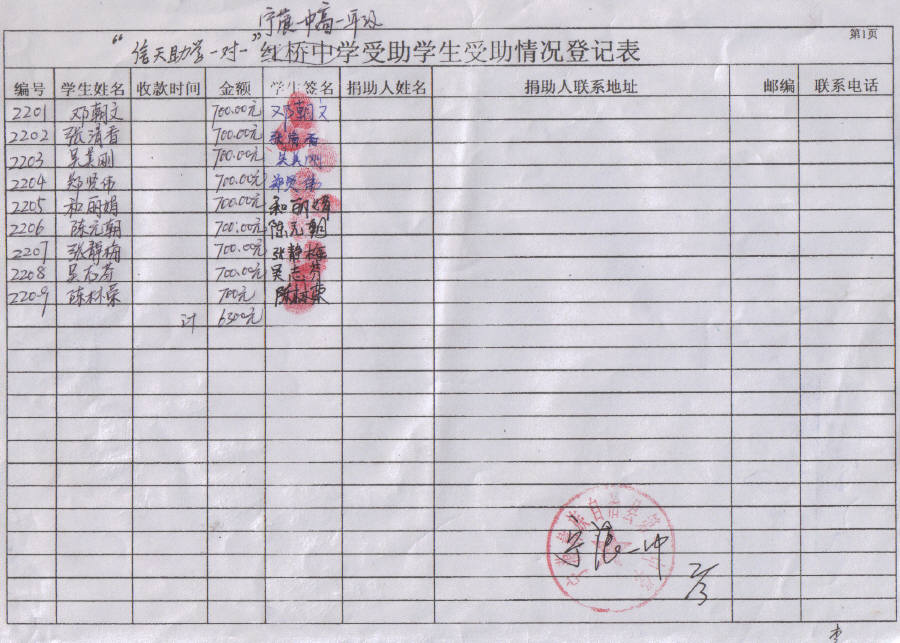 宁蒗一中高一年级
第1页
“信天助学一对一”红桥中学受助学生受助情况登记表
编号 学生姓名 收款时间 金额 学生签名 捐助人姓名 捐助人联系地址 邮编 联系电话
2201 邓朝文 700.00元 邓朝文
2202 张清香 700.00元 张清香
2203 吴美刚 700.00元 吴美刚
2204 郑贤伟 700.00元 郑贤伟
2205 和丽娟 700.00元 和丽娟
2206 陈元朝 700.00元 陈元朝
2207 张静梅 700.00元 张静梅
2208 吴志芳 700.00元 吴志芳
2209 陈林荣 700元 陈林荣
计 6300元
族自治县第
宁蒗一中
2/3